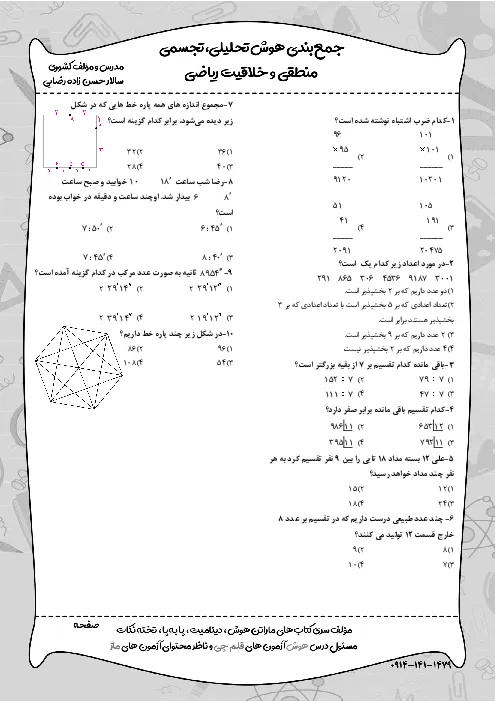 جمع‌بندی هوش تحلیلی، تجسمی
منطقی و خلاقیت ریاضی
مدرس و مؤلف کشوری
سالار حسن زاده رضایی
۱-کدام ضرب اشتباه نوشته شده است؟
۹۶ ۱۰۱
×۹۵ ×۱۰۱
(۲ (۱
۹۱۲۰ ۱۰۲۰۱
۵۱ ۱۰۵
۴۱ ۱۹۱
(۴ (۳
۲۰۹۱ ۲۰۴۷۵
۲-در مورد اعداد زیر کدام یک است؟
۲۹۱ ۸۶۵ ۳۰۶ ۴۵۳۶ ۹۱۸۷ ۳۰۰۱
۱)دو عدد داریم که بر ۲ بخشپذیر است.
۲)تعداد اعدادی که بر ۵ بخشپذیر است با تعداد اعدادی که بر ۳
بخشپذیر هستند برابر است.
۳) ۲ عدد داریم که بر ۹ بخشپذیر است.
۴)۴ عدد داریم که بر ۲ بخشپذیر نیست
۳-باقی مانده کدام تقسیم بر ۷ از بقیه بزرگتر است؟
۱) ۷۹ : ۷ ۲) ۱۵۲ : ۷
۳) ۴۷ : ۷ ۴) ۱۱۱ : ۷
۴-کدام تقسیم باقی مانده برابر صفر دارد؟
۱) ۶۵۳|۱۲ ۲) ۹۸۶|۱۱
۳) ۷۹۲|۱۱ ۴) ۳۹۵|۱۱
۵-علی ۱۲ بسته مداد ۱۸ تایی را بین ۹ نفر تقسیم کرد به هر
نفر چند مداد خواهد رسید؟
۱)۱۲ ۲)۱۵
۳)۲۴ ۴)۱۸
۶- چند عدد طبیعی درست داریم که در تقسیم بر عدد ۸
خارج قسمت ۱۲ تولید می کنند؟
۱)۸ ۲)۹
۳)۷ ۴)۱۰
۷-مجموع اندازه های همه پاره خط هایی که در شکل
زیر دیده می‌شود، برابر کدام گزینه است؟
۱)۳۶ ۲)۳۲
۳)۴۰ ۴)۲۸
۸-رضا شب ساعت ۱۸′ ۱۰ خوابید و صبح ساعت
۸′ ۶ بیدار شد. او چند ساعت و دقیقه در خواب بوده
است؟
۱) ۶:۴۵′ ۲) ۷:۵۰′
۳) ۸:۴۰′ ۴) ۷:۴۵′
۹-۸۹۵۴″ ثانیه به صورت عدد مرکب در کدام گزینه آمده است؟
۱) ۲ ۲۹′۱۲″ ۲) ۲ ۲۹′۱۴″
۳) ۲ ۱۹′۱۲″ ۴) ۲ ۳۹′۱۴″
۱۰-در شکل زیر چند پاره خط داریم؟
۱)۹۶ ۲)۸۶
۳)۵۴ ۴)۱۰۸
صفحه
مؤلف سری کتاب های ماراتن هوش، دینامیت، پا به پا، تخته نکات
مسئول درس هوش آزمون های قلم چی و ناظر محتوای آزمون های ماز
۰۹۱۴-۱۴۱-۱۴۷۹